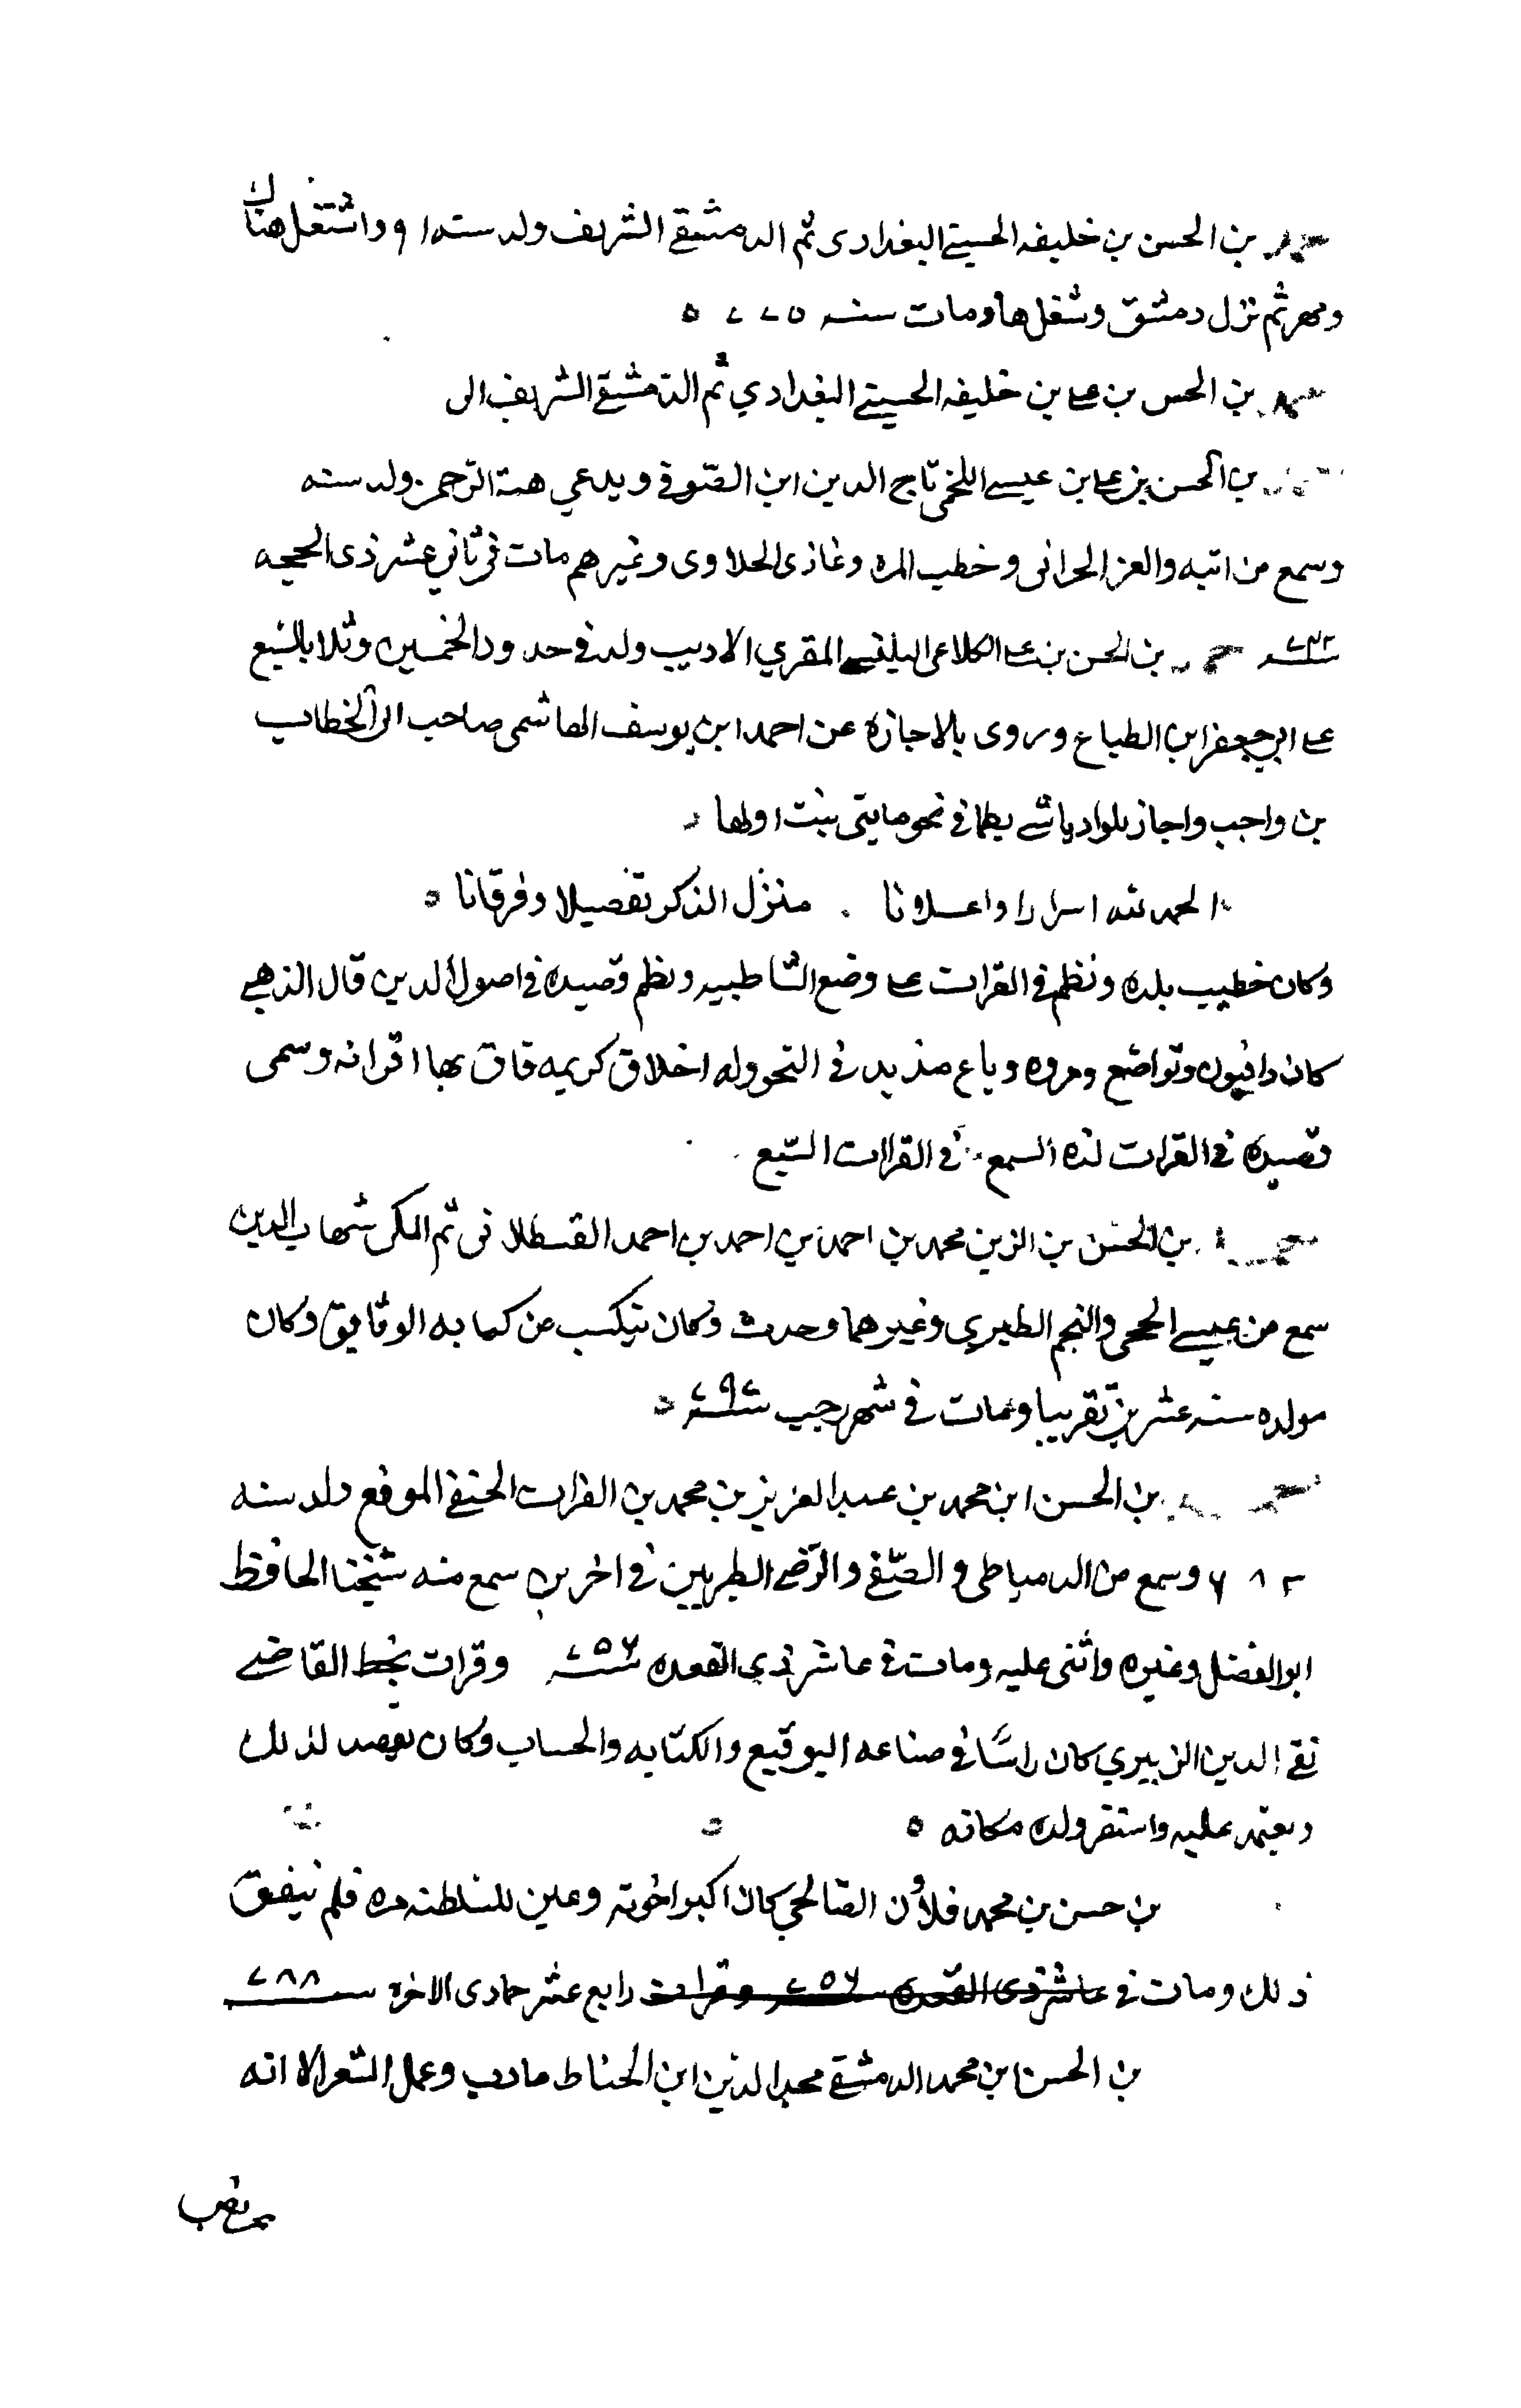 محمد بن الحسن بن خليفه الحسيني البغدادى ثم الدمشقي الشريف ولد سنه ٦٩١ واشتغل هناك
ومهر ثم نزل دمشق وشغل بها ومات سنه ٧٧٥
محمد بن الحسن بن علي بن خليفه الحسيني البغدادي ثم الدمشقي الشريف الى
بن الحسن بن علي بن عيسى اللخمي تاج الدين ابن الصوفي ويدعي هبة الرحمن ولد سنه
وسمع من ابيه والعز الحرانى وخطيب المزه وغازى الحلاوى وغيرهم مات في ثاني عشر ذى الحجه
سنه ٧٣٢ محمد بن الحسن بن علي الكلاعى البلفيقي المقري الاديب ولد في حدود الخمسين وتلا بالسبع
على ابي جعفر ابن الطباع وروى بالاجازه عن احمد ابن يوسف الهاشمى صاحب ابى الخطاب
بن واجب واجاز للوادياشي نظما في نحو مايتى بيت اولها
الحمد لله اسرارا واعلانا . منزل الذكر تفصيلا وفرقانا
وكان خطيب بلده ونظم في القرات على وضع الشاطبيه ونظم قصيده في اصول الدين قال الذهبي
كان ذا فنون وتواضع ومروه وباع مديد في النحو وله اخلاق كريمه فاق بها اقرانه وسمى
قصيده في القرات لذه السمع في القراات السبع
محمد بن الحسن بن الزين محمد بن احمد بن احمد بن احمد القسطلانى ثم المكى شهاب الدين
سمع من عيسى الحجى والنجم الطبري وغيرهما وحدث وكان يتكسب من كتابه الوثايق وكان
مولده سنه عشرين تقريبا ومات في شهر رجب سنه ٧٩٧
محمد بن الحسن ابن محمد بن عبد العزيز بن محمد بن الفرات الحنفي الموقع ولد سنه
٦٨٣ وسمع من الدمياطى والصفي والرضي الطبريين في اخرين سمع منه شيخنا الحافظ
ابو الفضل وغيره واثنى عليه ومات في عاشر ذي القعده سنه ٧٥٦ وقرات بخط القاضي
تقي الدين الزبيري كان راسا في صناعه التوقيع والكتابه والحساب وكان يقصد لذلك
ويعتمد عليه واستقر ولده مكانه
بن حسن بن محمد قلاون الصالحي كان اكبر اخوته وعين للسلطنه مره فلم يتفق
ذلك ومات في عاشر ذى القعده سنه ٧٥٦ وقرات رابع عشر جمادى الاخره سنه ٧٨٨
بن الحسن بن محمد الدمشقي مجد الدين ابن الخياط مادب وعمل الشعر الا انه